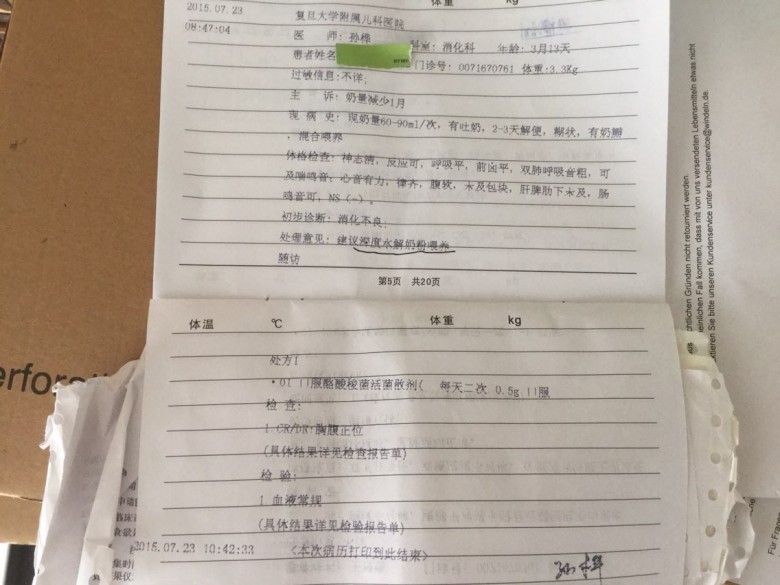 体重 kg
2015.07.23 复旦大学附属儿科医院
08:47:04
医 师: 孙桦 科室: 消化科 年龄: 3月13天
患者姓名 门诊号: 0071670761 体重: 3.3Kg
过敏信息: 不详,
主 诉: 奶量减少1月
现 病 史: 现奶量60-90ml/次, 有吐奶, 2-3天解便, 糊状, 有奶瓣
, 混合喂养
体格检查: 神志清, 反应可, 呼吸平, 前囟平, 双肺呼吸音粗, 可
及喘鸣音; 心音有力, 律齐, 腹软, 未及包块, 肝脾肋下未及, 肠
鸣音可, NS (-) 。
初步诊断: 消化不良;
处理意见: 建议深度水解奶粉喂养
随访
第5页 共20页
体温 ℃ 体重 kg
处方1
·01 口服酪酸梭菌活菌散剂( 每天二次 0.5g 口服
检 查:
1.CR/DR:胸腹正位
(具体结果详见检查报告单)
检 验:
1 血液常规
(具体结果详见检验报告单)
2015.07.23 10:42:33 <本次病历打印到此结束>
erfor
chtlichen Gründen nicht retourniert werden.
einlichen Fall kommen, dass mit von uns versendeten Lebensmitteln etwas nicht
tieren Sie bitte unseren Kundenservice unter kundenservice@windeln.de.